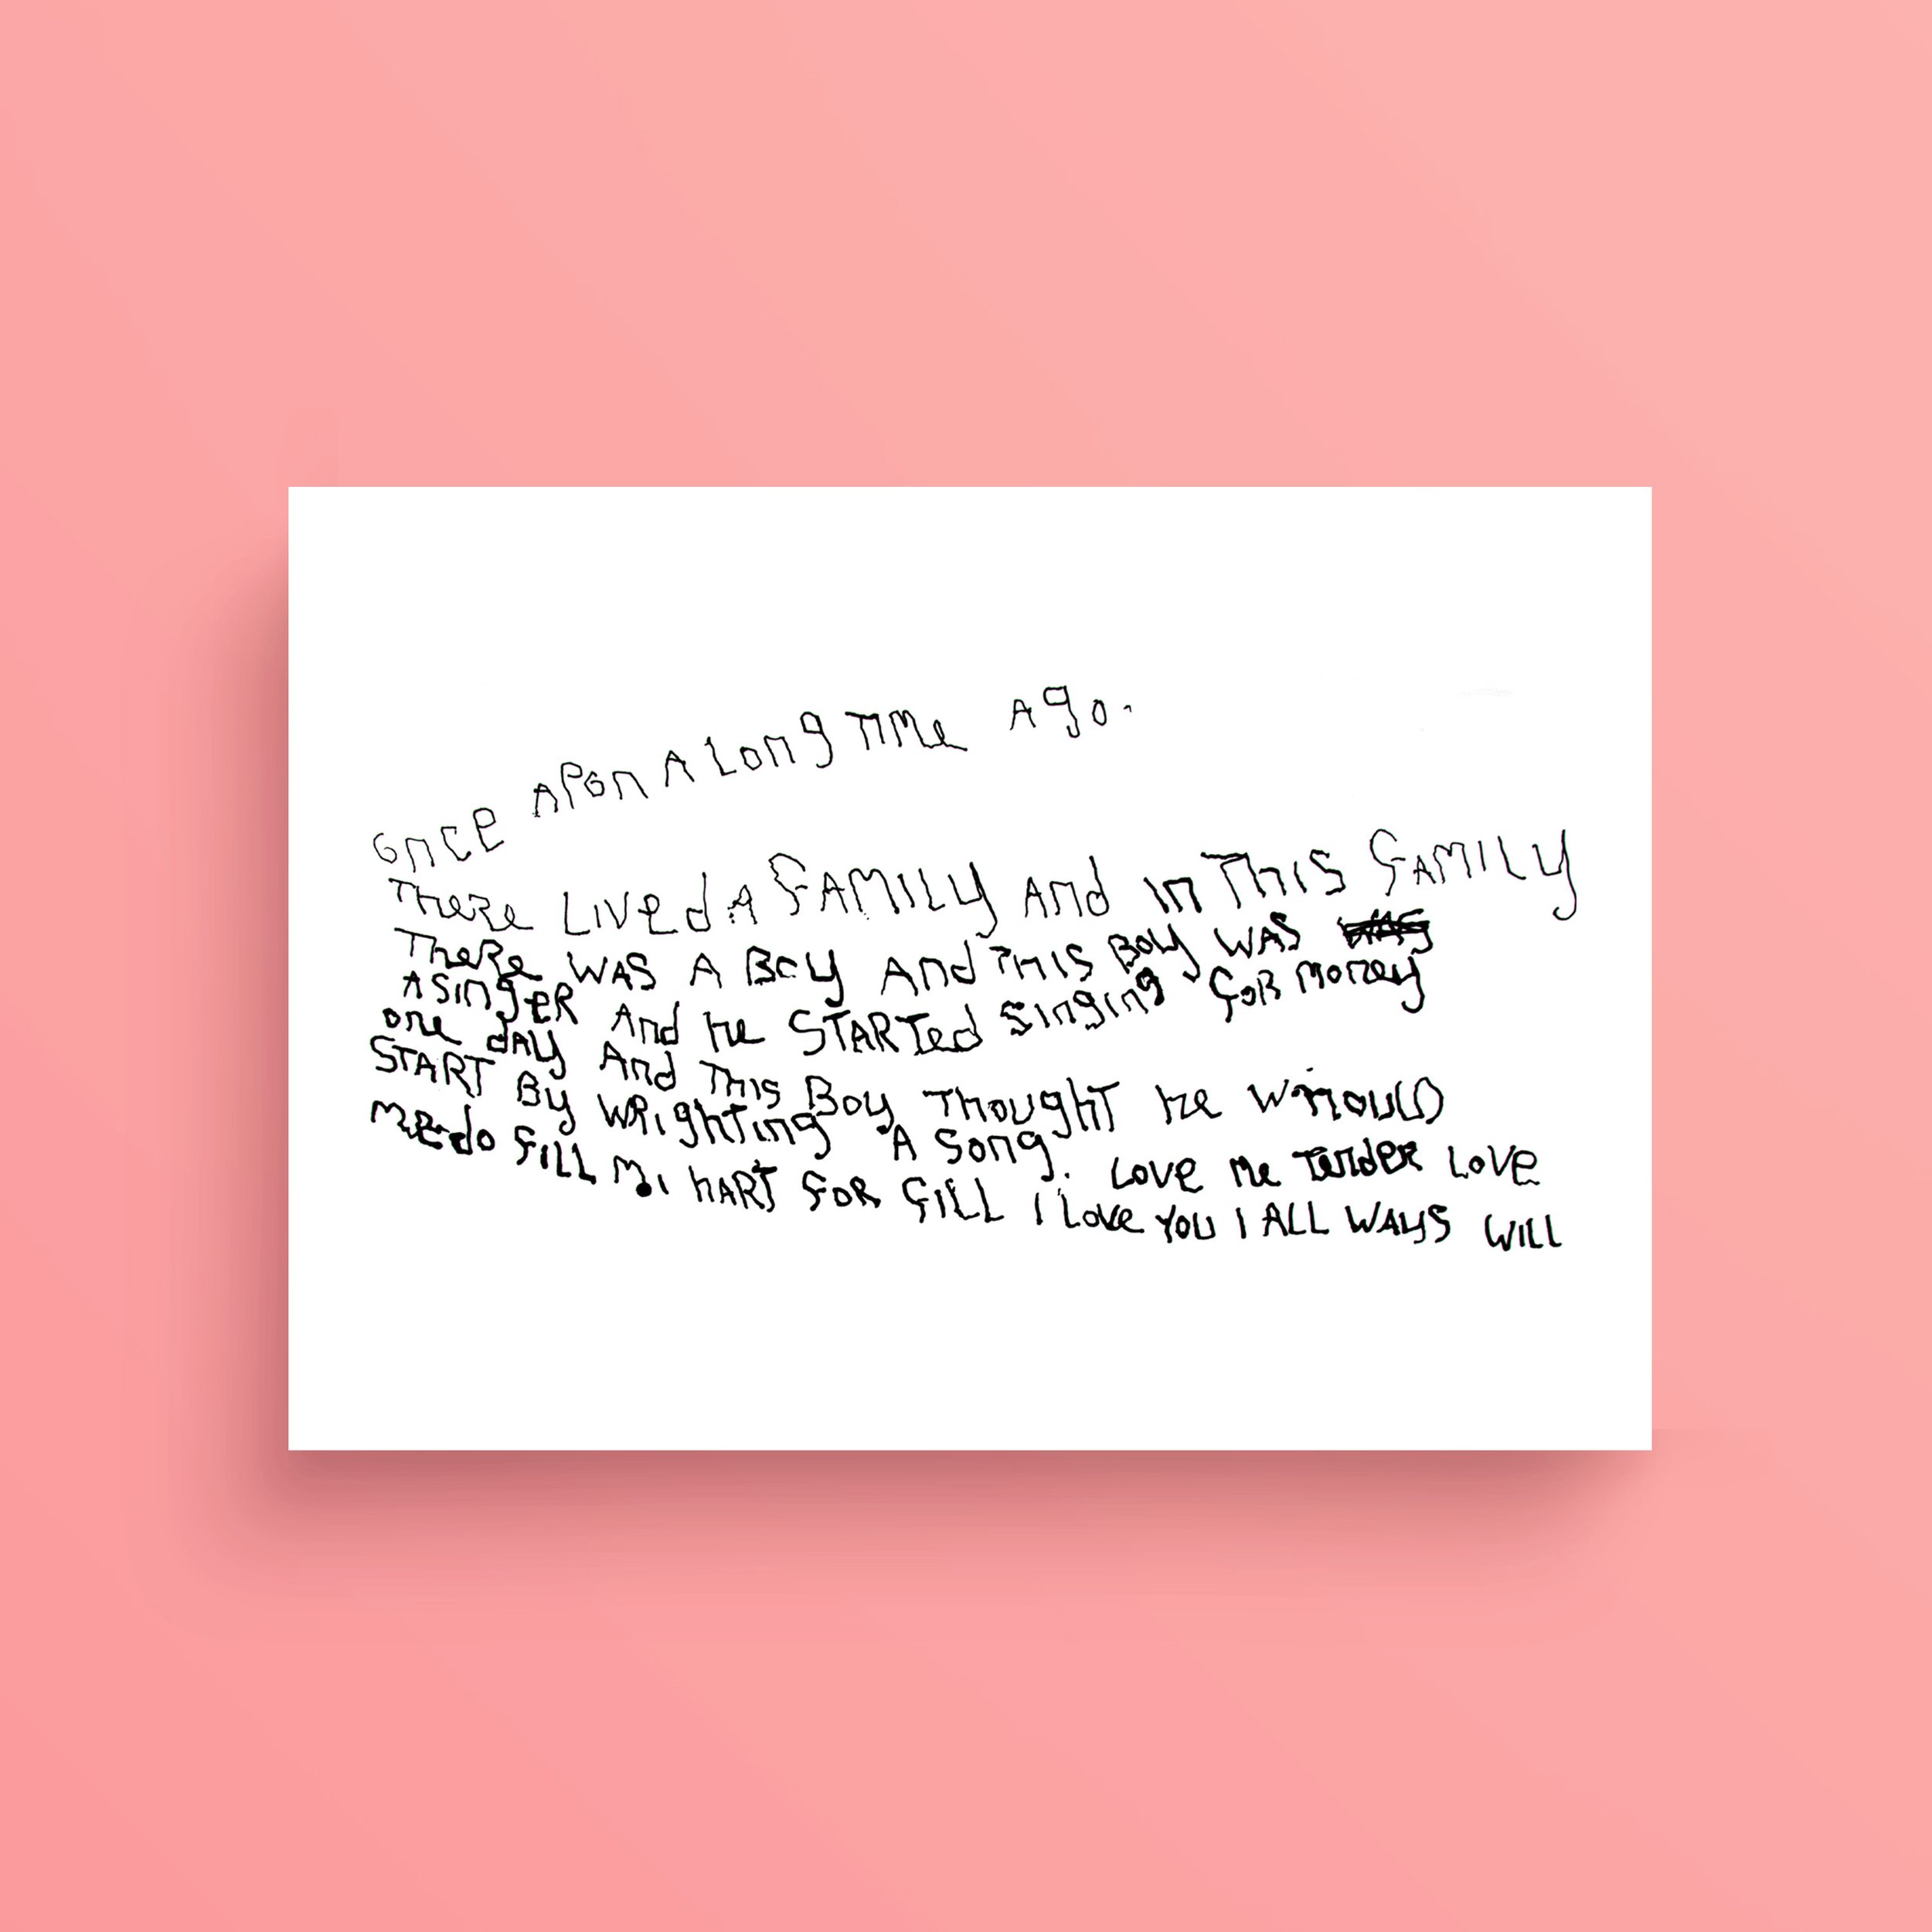 Once Apon A Long Time Ago.
There Lived A Family And in This Family
There was A Boy And This Boy was
A Singer And he Started Singing for money
one day And This Boy Thought he whould
Start By wrighting A Song. Love me Tender Love
me do fill mi hart for fill i Love you i all ways will